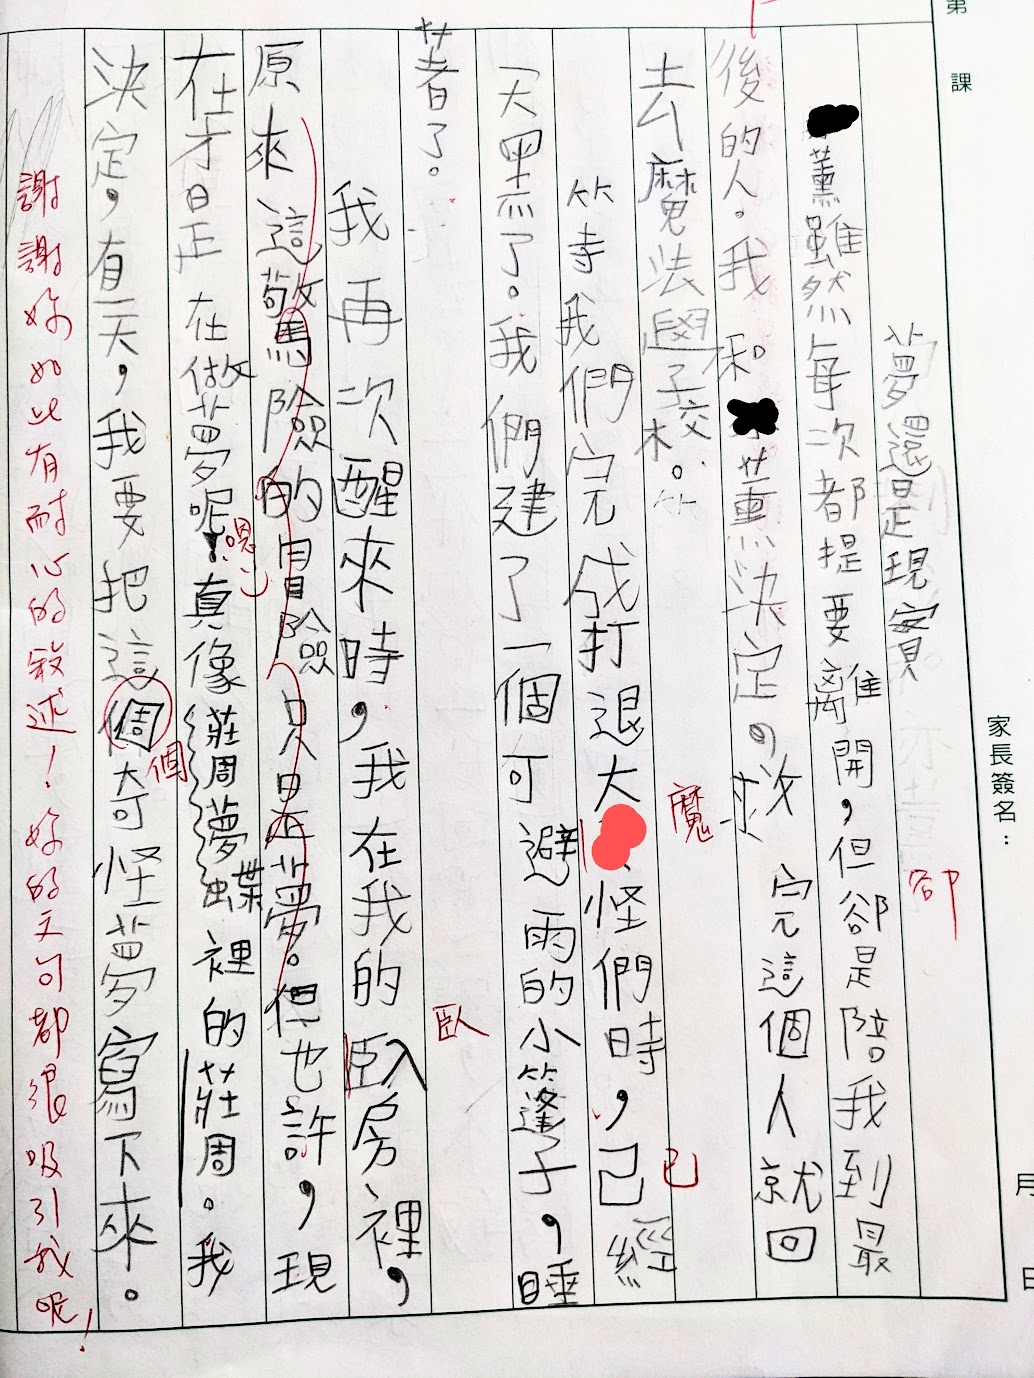 第　課
家長簽名：
月　日
夢還是現實
薰雖然每次都提要離開，但卻是陪我到最
卻
後的人。我和薰決定救完這個人就回
去魔法學校。
魔
等我們完成打退大怪們時，己經
已
天黑了。我們建了一個可避雨的小篷子，睡
著了。
我再次醒來時，我在我的臥房裡，
臥
原來這驚險的冒險只是夢。但也許，現
在才是正在做夢呢！真像莊周夢蝶裡的莊周。我
嗯
決定，有一天，我要把這個奇怪夢寫下來。
個
謝謝妳如此有耐心的敘述！妳的文句都很吸引我呢！